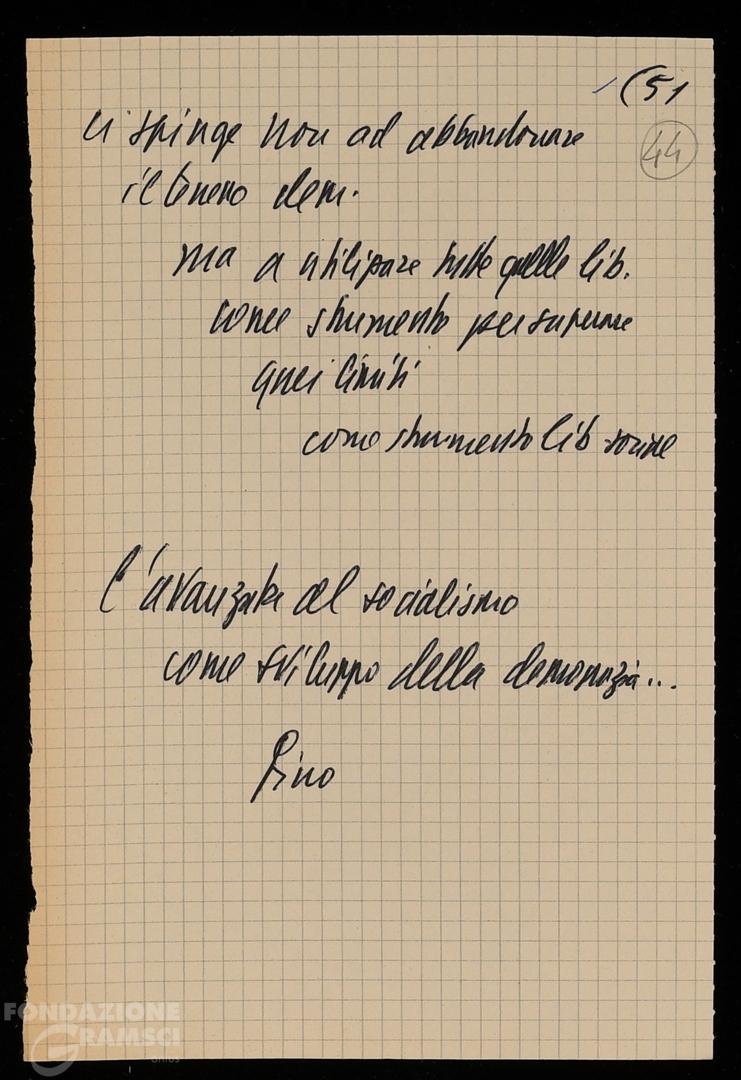 (51
44
ci spinge non ad abbandonare
il terreno dem.
ma a utilizzare tutte quelle lib.
come strumento per superare
quei limiti
come strumento lib
l'avanzata al socialismo
come sviluppo della democrazia...
Fino
FONDAZIONE
GRAMSCI
onlus